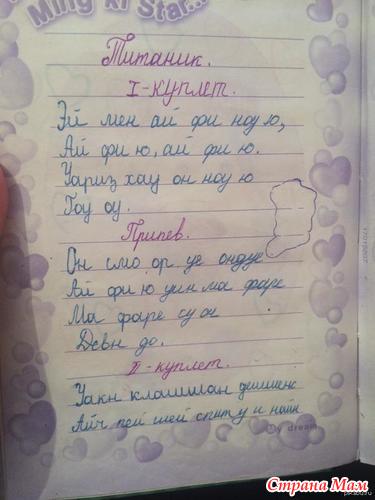 Ming xi Star...
Титаник.
I-куплет.
Эй мен ай фи ноу ю,
Ай фи ю, ай фи ю.
Уариз хау он ноу ю
Гоу оу.
Припев.
Он смо ор уе
Ай фи ю уин ма фаре
Ма фаре су ое
Девн до.
II-куплет.
Уакн
Айч пей шей спит у и найн
dream
Страна Мам